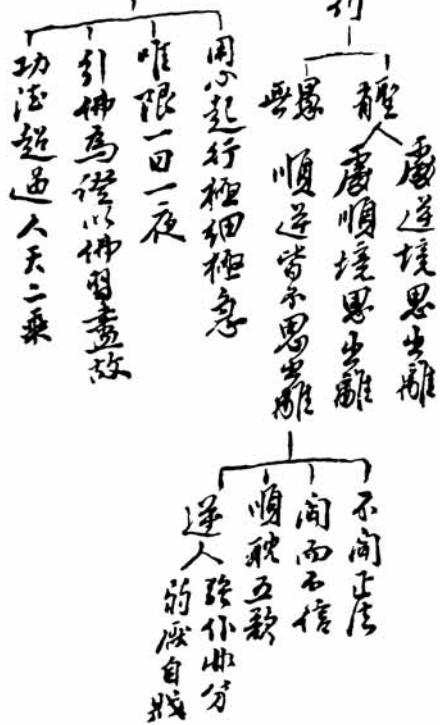 智人
處逆境思出離
處順境思出離
愚
順逆皆不思出離
不聞正法
聞而不信
順耽五欲
逆人
強作
分
弱
自戕
用心起行極細極急
唯限一日一夜
引佛為證以佛習盡故
功德超過人天二乘